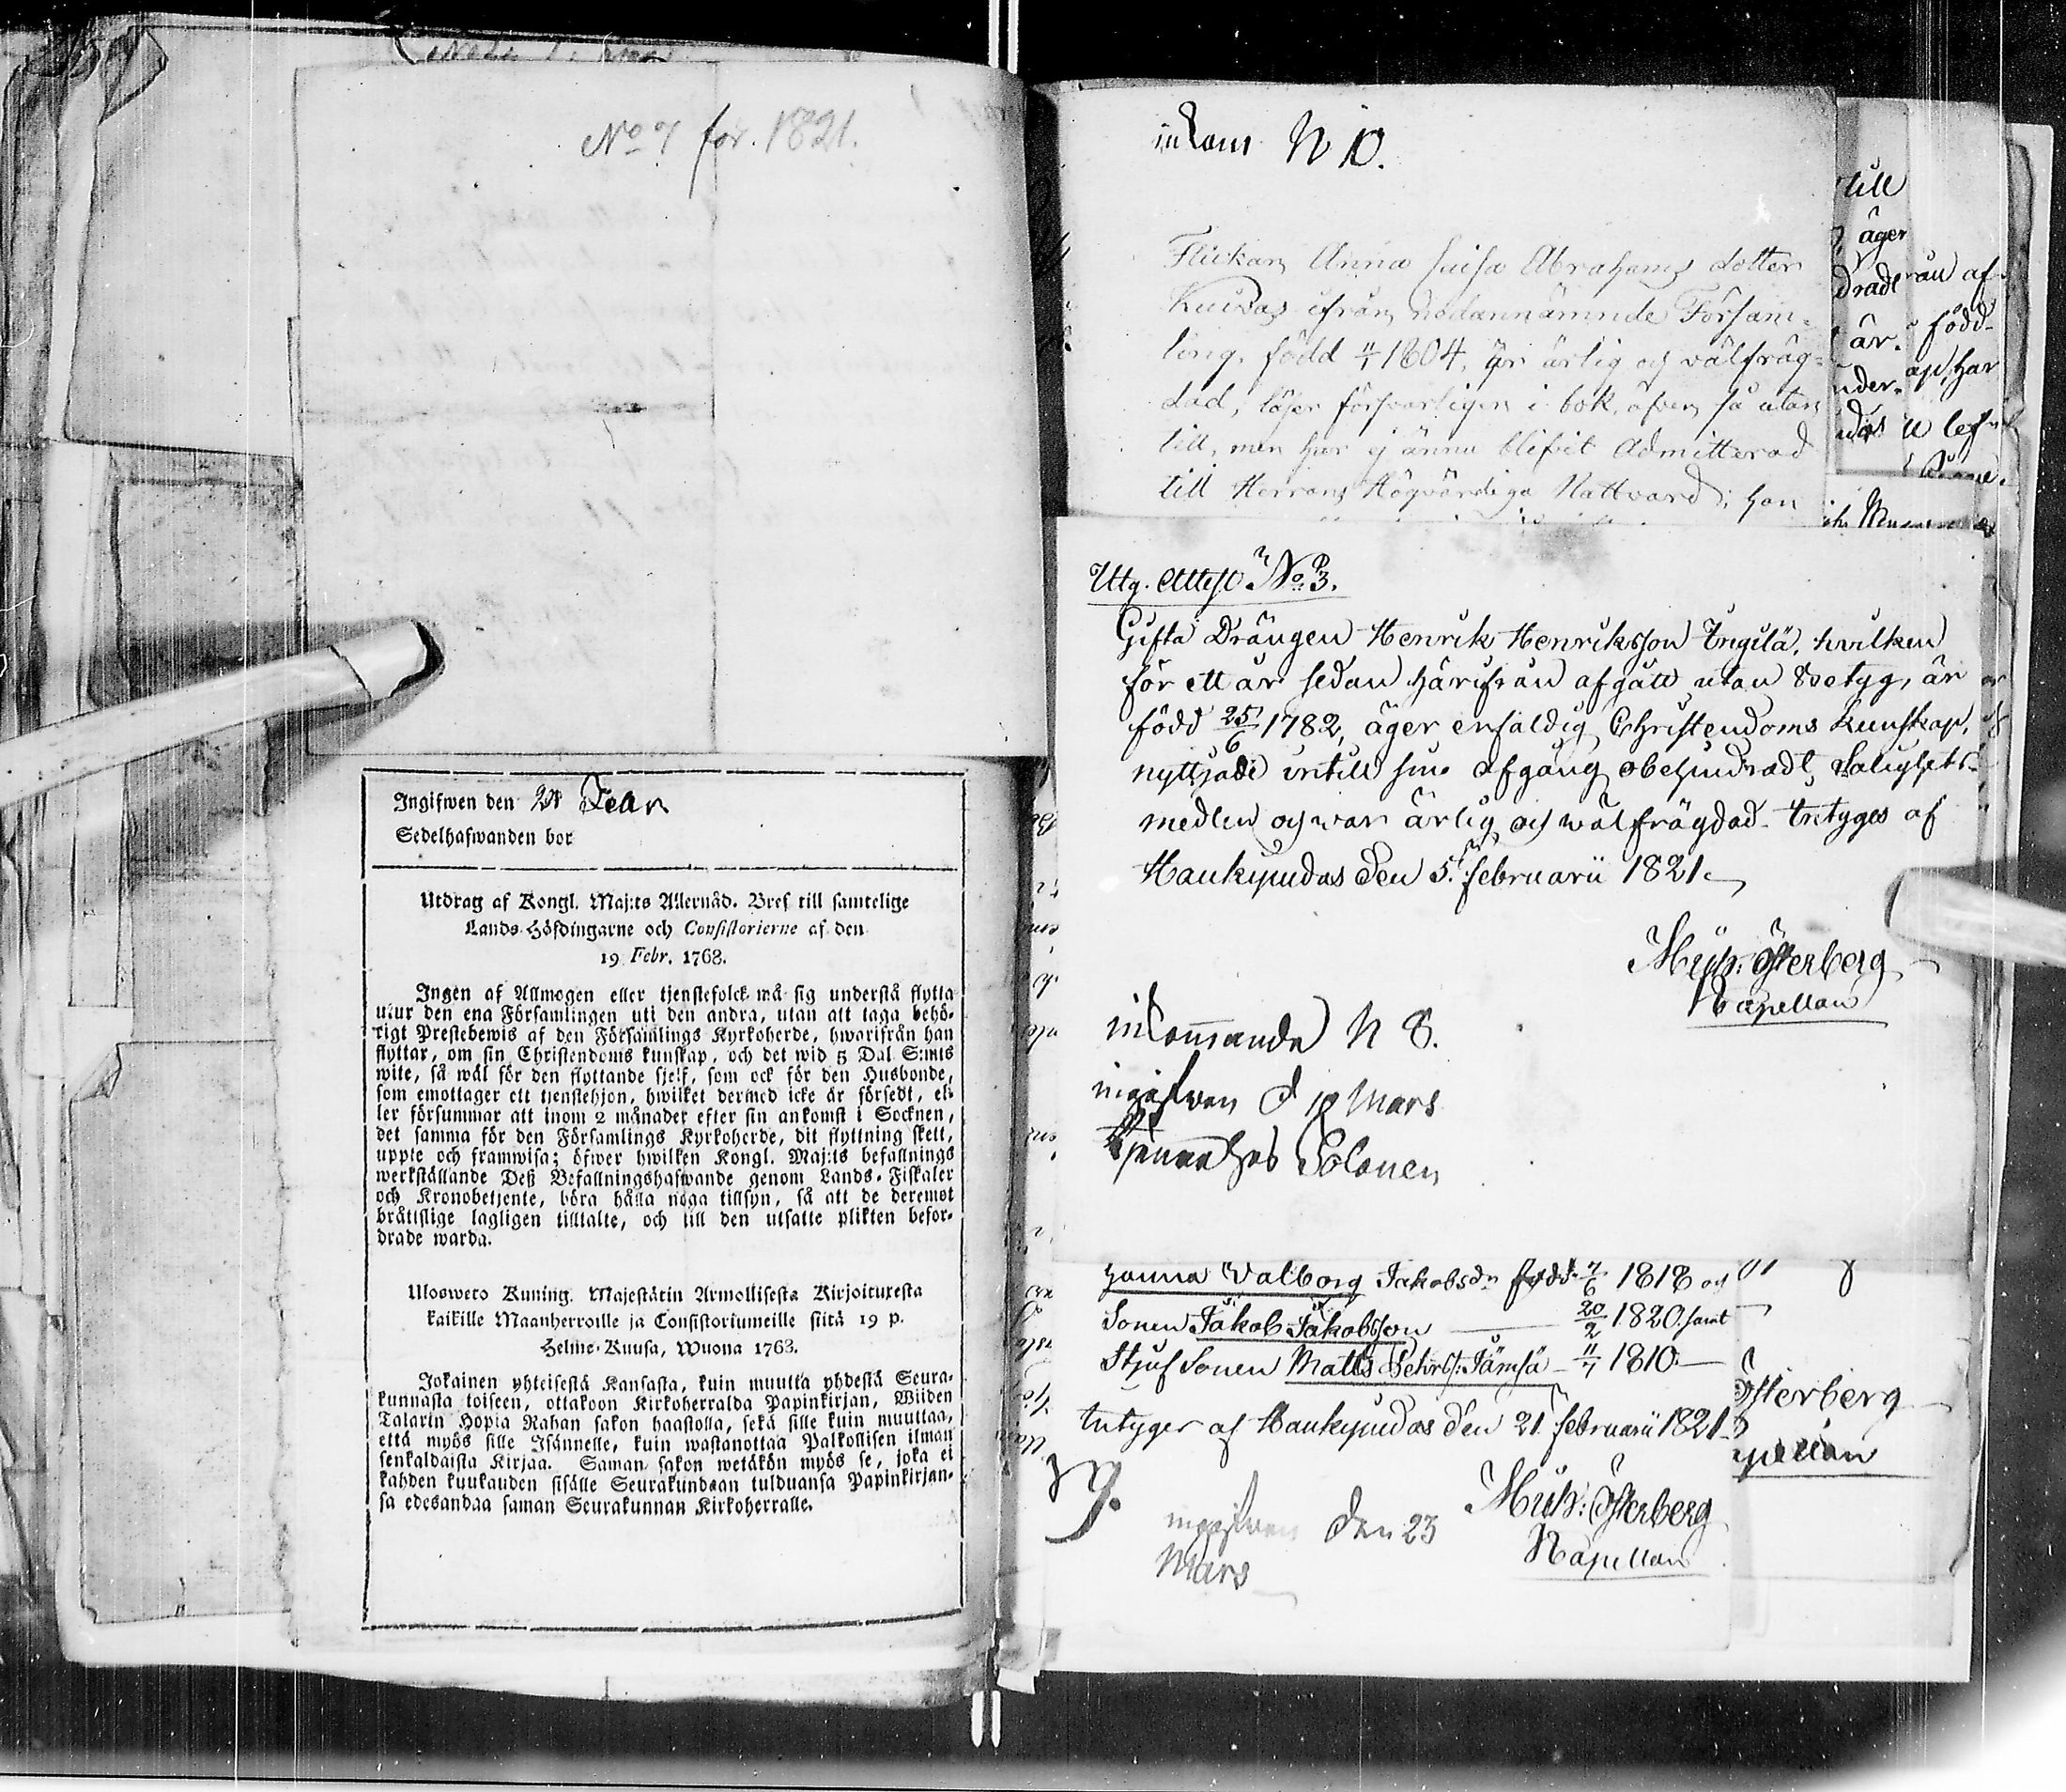 No 7 för. 1821.
Ingifwen den 21 Febr
Sedelhafwanden bor
Utdrag af Kongl. Maj:ts Allernåd. Bref till samtelige
Lands-Höfdingarne och Consistorierne af den
19 Febr. 1768.
Ingen af Allmogen eller tjenstefolck må sig understå flytta
utur den ena Församlingen uti den andra, utan att taga behö-
rigt Prestebewis af den Församlings Kyrkoherde, hwarifrån han
flyttar, om sin Christendoms kunskap, och det wid 5 Dal. S:mts
wite, så wäl för den flyttande sjelf, som ock för den Husbonde,
som emottager ett tjenstehjon, hwilket dermed icke är försedt, el-
ler försummar att inom 2 månader efter sin ankomst i Socknen,
det samma för den Församlings Kyrkoherde, dit flyttning skett,
uppte och framwisa; öfwer hwilken Kongl. Maj:ts befallnings
werkställande Deß Befallningshafwande genom Lands-Fiskaler
och Kronobetjente, böra hålla noga tillsyn, så att de deremot
bråttslige lagligen tilltalte, och till den utsatte plikten befor-
drade warda.
Uloswetо Kuning. Majestätin Armollisesta Kirjoituxesta
kaikille Maanherroille ja Consistoriumeille siitä 19 p.
Helme-Kuusa, Wuona 1763.
Jokainen yhteisestä Kansasta, kuin muutta yhdestä Seura-
kunnasta toiseen, ottakoon Kirkoherralda Papinkirjan, Wiiden
Talarin Hopia Rahan sakon haastolla, sekä sille kuin muuttaa,
että myös sille Isännelle, kuin wastanottaa Palkollisen ilman
senkaldaista Kirjaa. Saman sakon wetäkön myös se, joka ei
kahden kuukauden sisälle Seurakundaan tulduansa Papinkirjan-
sa edesandaa saman Seurakunnan Kirkoherralle.
inkom N 10.
Flickan Anna Caisa Abrahams dotter
Kuivas ifrån nedannämnde Försam-
ling, född 4/1 1804, är ärlig och välfräg-
dad, läser försvarligen i bok, äfven så utan
till, men har ej ännu blifvit Admitterad
till Herrans Högvärdiga Nattvard; hon
till
äger
är.
född
har
Utg. Attest No 3.
Gifta Drängen Henrik Henriksson Yngilä, hvilken
för ett år sedan härifrån afgått utan betyg, är
född 25/6 1782, äger enfaldig Christendoms kunskap,
nyttjade intill sin afgång obehindradt Salighets-
medlen och war ärlig och wälfrägdad. Intygas af
Haukipudas den 5. februarii 1821.
Mich: Österberg
Capellan
inkommande N 8.
ingifwen d 10 Mars
hos Solonen
hanna Walborg Jakobsdr född 7/6 1818 och
Sonen Jakob Jakobsson 20/2 1820. samt
Stjuf Sonen Matts Jämsä 11/7 1810.
Intygar af Haukipudas den 21. februarii 1821
Mich: Österberg
Kapellan
Österberg
9.
ingifwen den 23
Mars